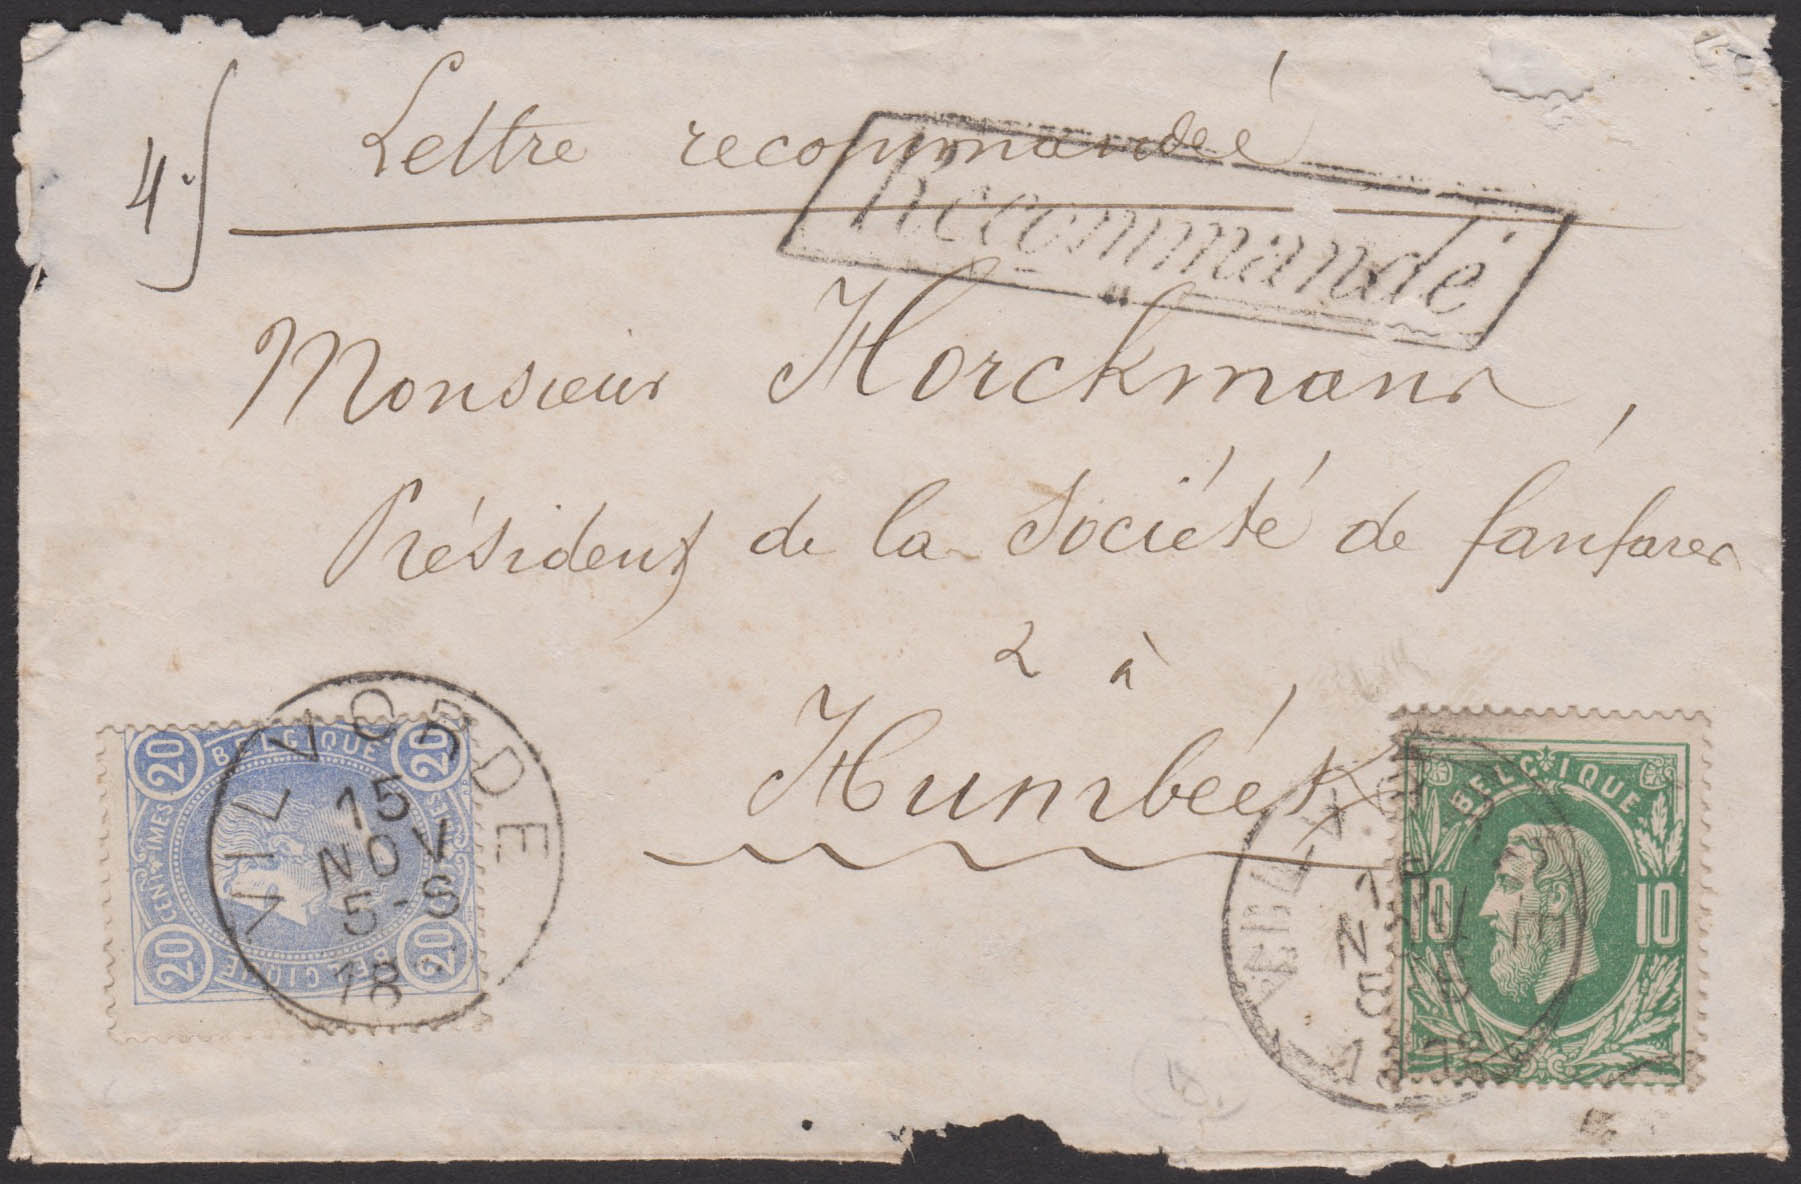 4.
Lettre recommandée
Recommandé
Monsieur Horckmans,
Président de la Société de fanfares
2 à
Humbéek
VILVORDE
15
NOV
5-S
18
BELGIQUE
20 20
CENTIMES
20 20
BELGIQUE
BELGIQUE
10 10